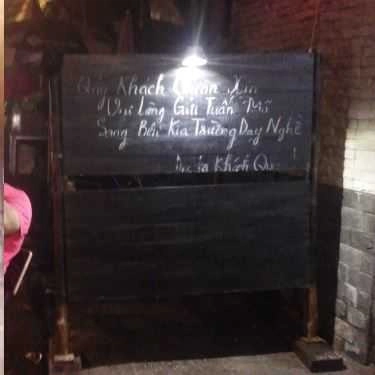 Qúy Khách Quán Xin
Vui Lòng Gửi Tuấn Mã
Sang Bên Kia Trường Dạy Nghề
Khách Qu